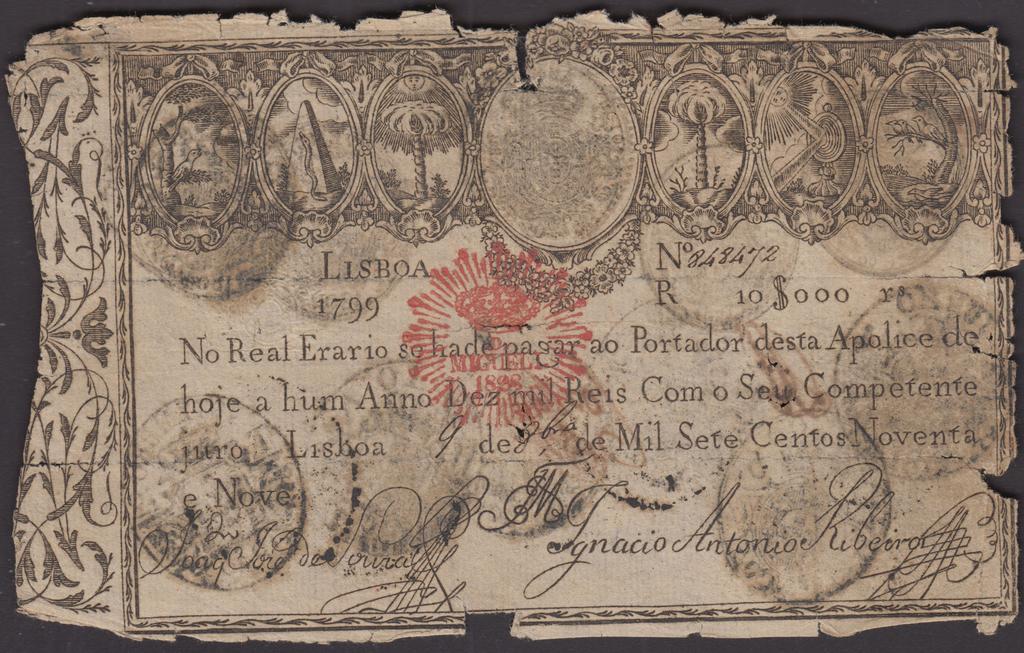 LISBOA
1799
Nº 848472
R 10$000 rs
No Real Erario se hade pagar ao Portador desta Apolice de
MIGUEL
1828
hoje a hum Anno Dez mil Reis Com o Seu Competente
juro Lisboa 9 de de Mil Sete Centos Noventa
e Nove
de Souza
Ignacio Antonio Ribeiro